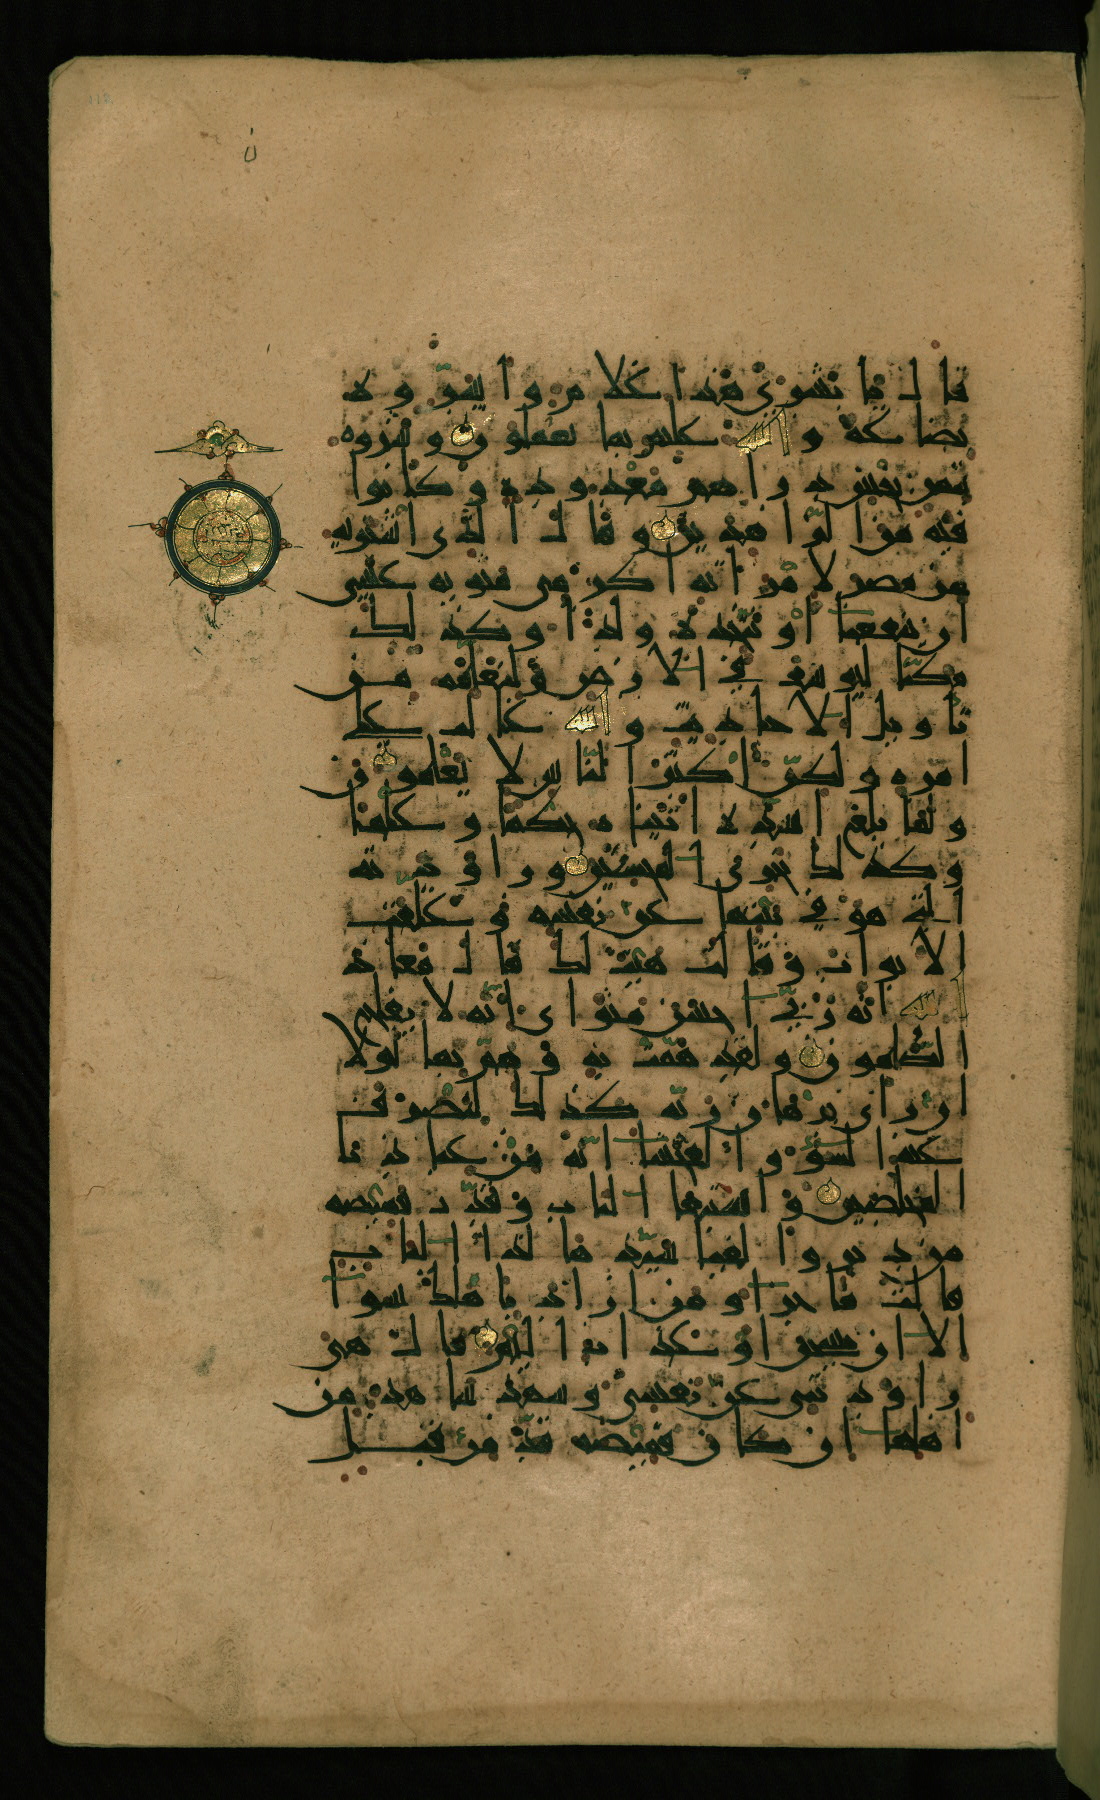 ن
قال يا بشرى هذا غلام وأسروه
بضاعة والله عليم بما يعملون وشروه
بثمن بخس دراهم معدودة وكانوا
فيه من الزاهدين وقال الذي اشتريه
من مصر لامرأته أكرمي مثويه عسى
أن ينفعنا أو نتخذه ولدا وكذلك
مكنا ليوسف في الأرض ولنعلمه من
تأويل الأحاديث والله غالب على
أمره ولكن أكثر الناس لا يعلمون
ولما بلغ أشده آتيناه حكما وعلما
وكذلك نجزي المحسنين وراودته
التي هو في بيتها عن نفسه وغلقت
الأبواب وقالت هيت لك قال معاذ
الله إنه ربي أحسن مثواي إنه لا يفلح
الظالمون ولقد همت به وهم بها لولا
أن رأى برهان ربه كذلك لنصرف
عنه السوء والفحشاء إنه من عبادنا
المخلصين واستبقا الباب وقدت قميصه
من دبر وألفيا سيدها لدا الباب
قالت ما جزاء من أراد بأهلك سوءا
إلا أن يسجن أو عذاب أليم قال هي
راودتني عن نفسي وشهد شاهد من
أهلها إن كان قميصه قد من قبل